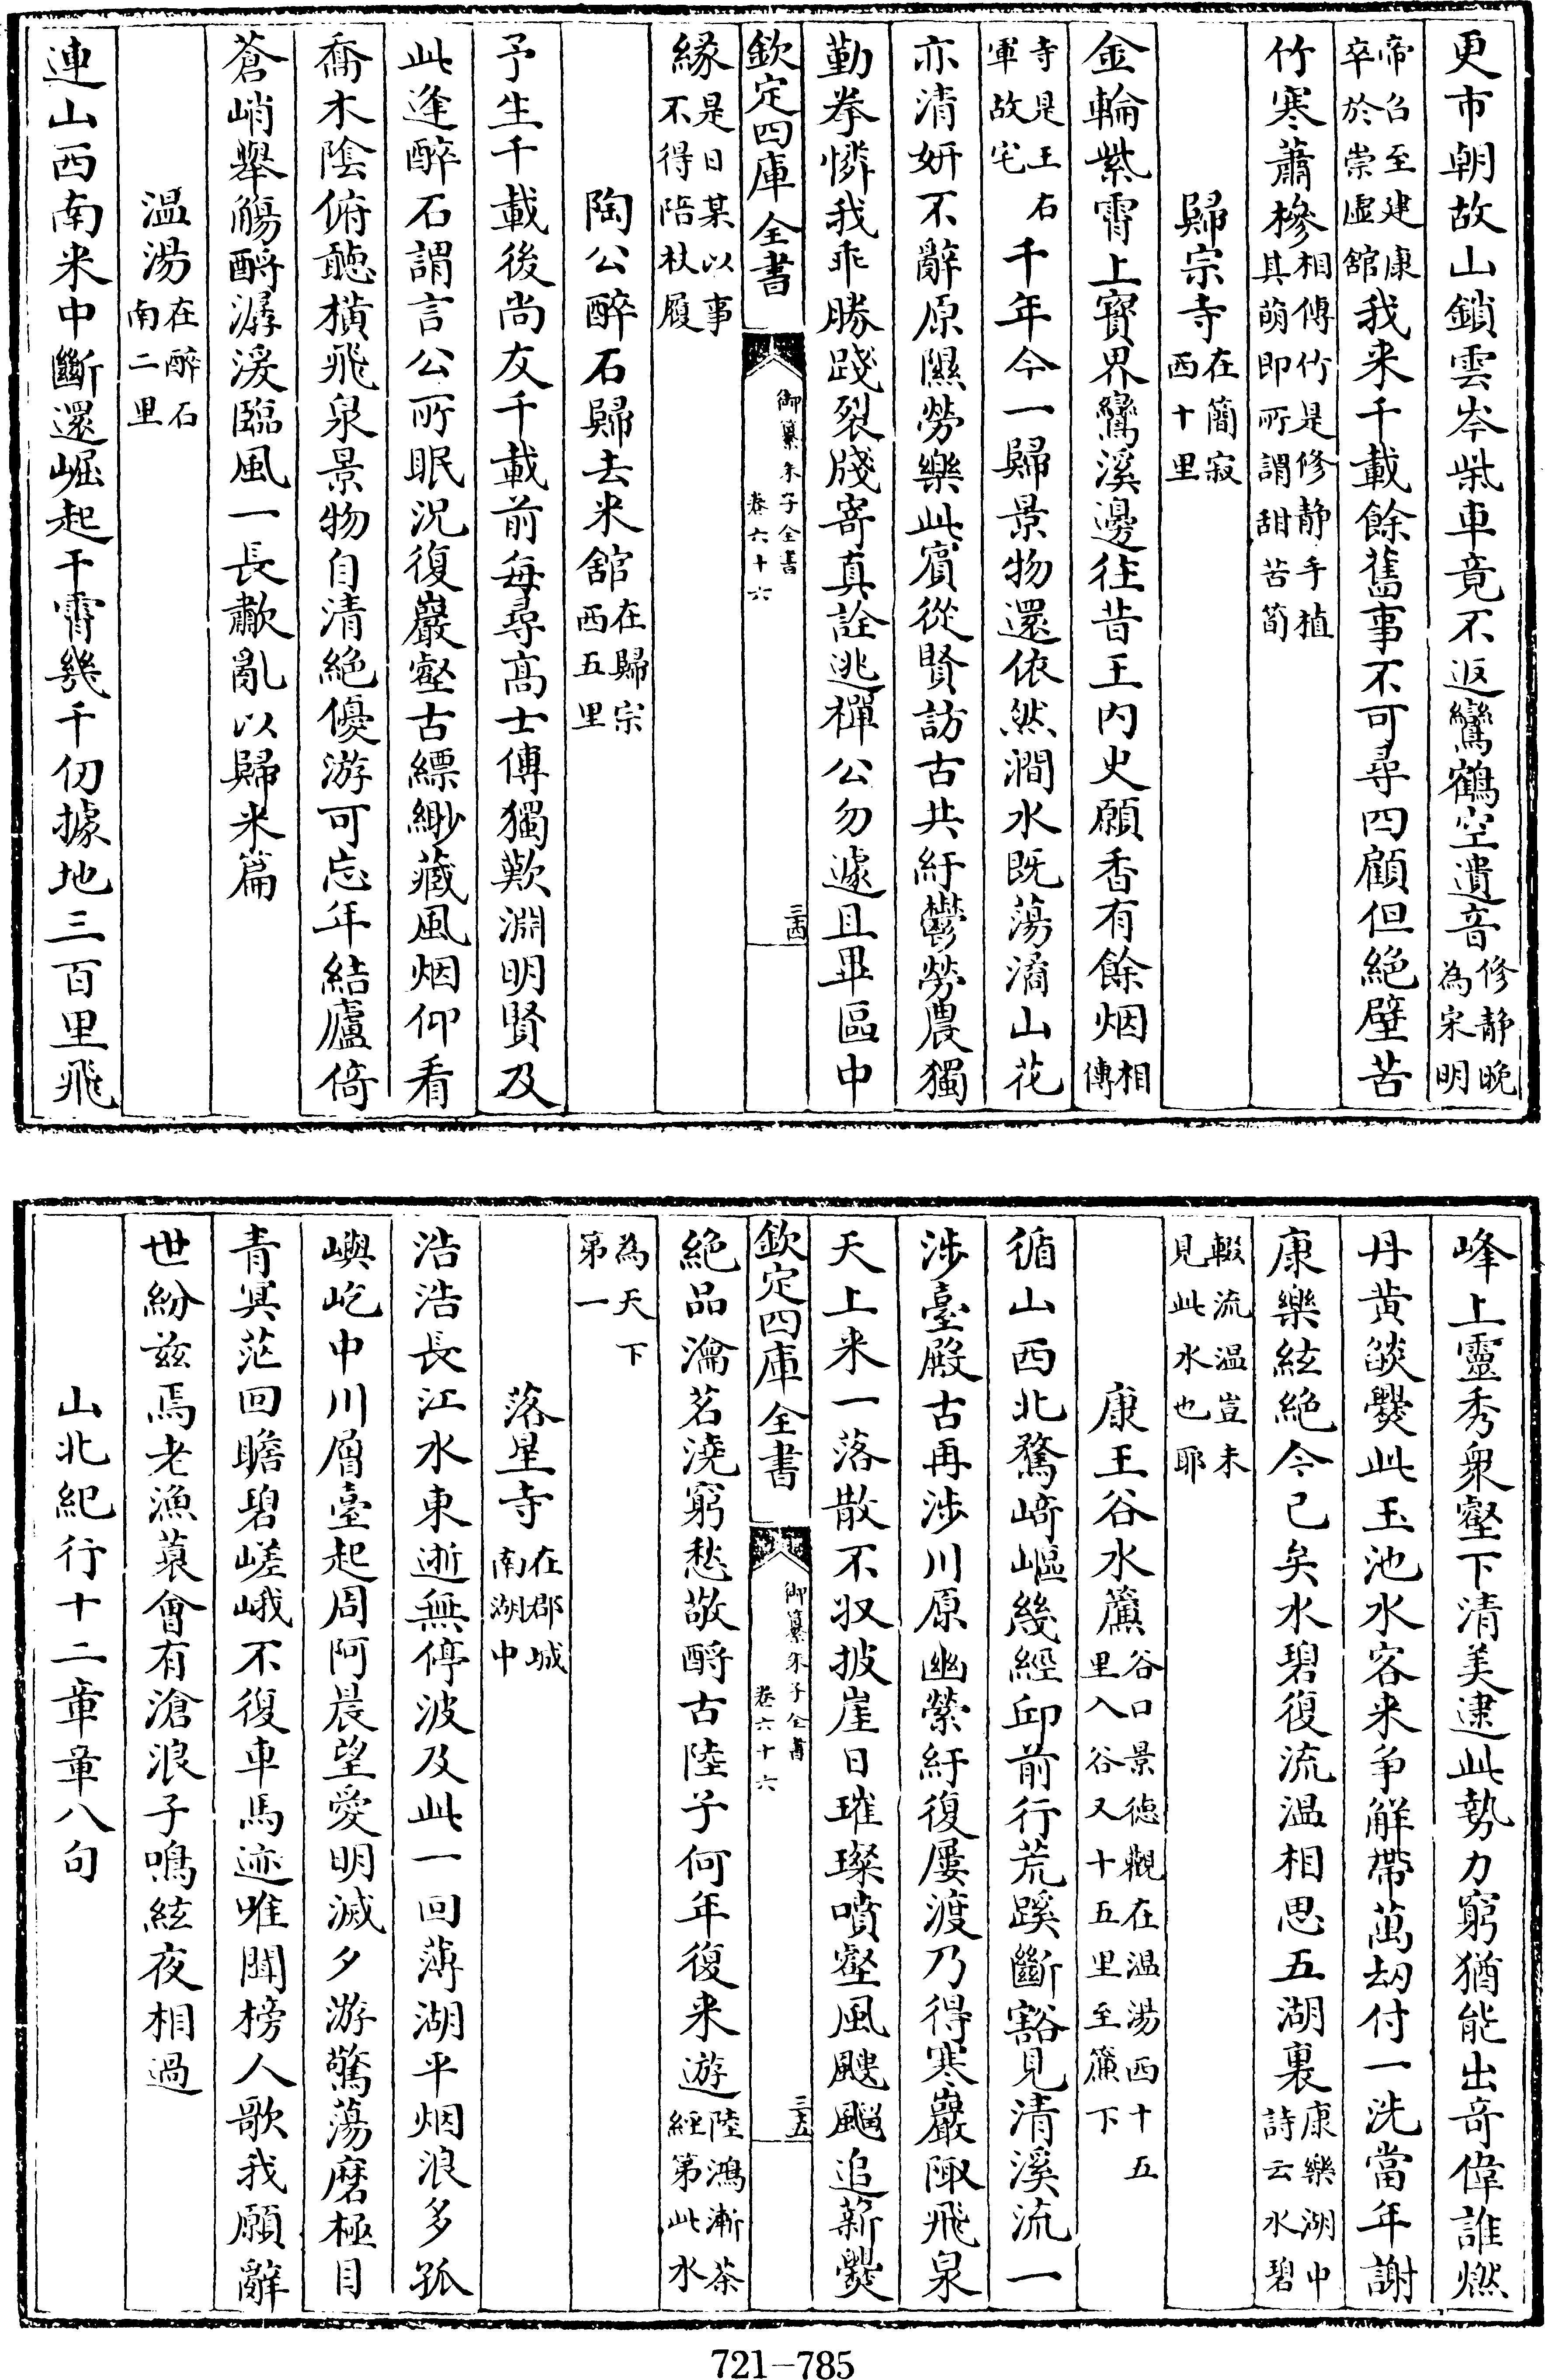 更市朝故山鎖雲岑柴車竟不返鸞鶴空遺音修静晚為宋明
帝召至建康卒於崇虛舘我来千載餘舊事不可尋四顧但絶壁苦
竹寒蕭槮相傳竹是修静手植其萌即所謂甜苦筍
歸宗寺在簡寂西十里
金輪紫霄上寳界鸞溪邊往昔王内史願香有餘烟相傳
寺是王右軍故宅千年今一歸景物還依然澗水既蕩潏山花
亦清妍不辭原隰勞樂此賓從賢訪古共紆鬱勞農獨
勤拳憐我乖勝踐裂牋寄真詮逃禪公勿遽且畢區中
欽定四庫全書
御纂朱子全書
卷六十六
三十四
緣是日某以事不得陪杖履
陶公醉石歸去来舘在歸宗西五里
予生千載後尚友千載前每尋髙士傳獨歎淵明賢及
此逢醉石謂言公所眠況復巖壑古縹緲藏風烟仰看
喬木隂俯聽横飛泉景物自清絶優游可忘年結廬倚
蒼峭舉觴酹潺湲臨風一長嘯亂以歸来篇
温湯在醉石南二里
連山西南来中斷還崛起干霄幾千仞據地三百里飛
峰上靈秀衆壑下清美逮此勢力窮猶能出竒偉誰燃
丹黄燄爨此玉池水客来争解帶萬刼付一洗當年謝
康樂絃絶今已矣水碧復流温相思五湖裏康樂湖中詩云水碧
輟流温豈未見此水也耶
康王谷水簾谷口景德觀在温湯西十五里入谷又十五里至簾下
循山西北騖崎嶇幾經丘前行荒蹊斷豁見清溪流一
涉臺殿古再涉川原幽縈紆復屢渡乃得寒巖陬飛泉
天上来一落散不収披崖日璀璨噴壑風飂飀追薪爨
欽定四庫全書
御纂朱子全書
卷六十六
三十五
絶品瀹茗澆窮愁敬酹古陸子何年復来遊陸鴻漸茶經第此水
為天下第一
落星寺在郡城南湖中
浩浩長江水東逝無停波及此一回薄湖平烟浪多孤
嶼屹中川層臺起周阿晨望愛明滅夕游驚蕩磨極目
青冥茫回瞻碧嵯峨不復車馬迹唯聞榜人歌我願辭
世紛兹焉老漁蓑會有滄浪子鳴絃夜相過
山北紀行十二章章八句
721-785